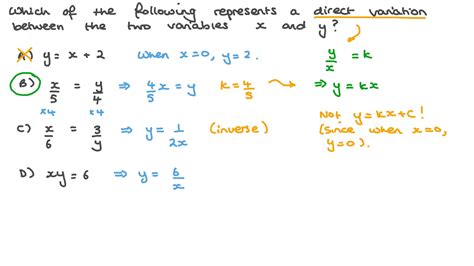 Which of the following represents a direct variation
between the two variables x and y?
A) y = x + 2 when x=0, y=2.
y/x = k
B) x/5 = y/4 ⇒ 4x/5 = y k = 4/5 ⇒ y = kx
×4 ×4
C) x/6 = 3/y ⇒ y = 1/2x (inverse)
Not y=kx+C!
(Since when x=0,
y=0).
D) xy = 6 ⇒ y = 6/x